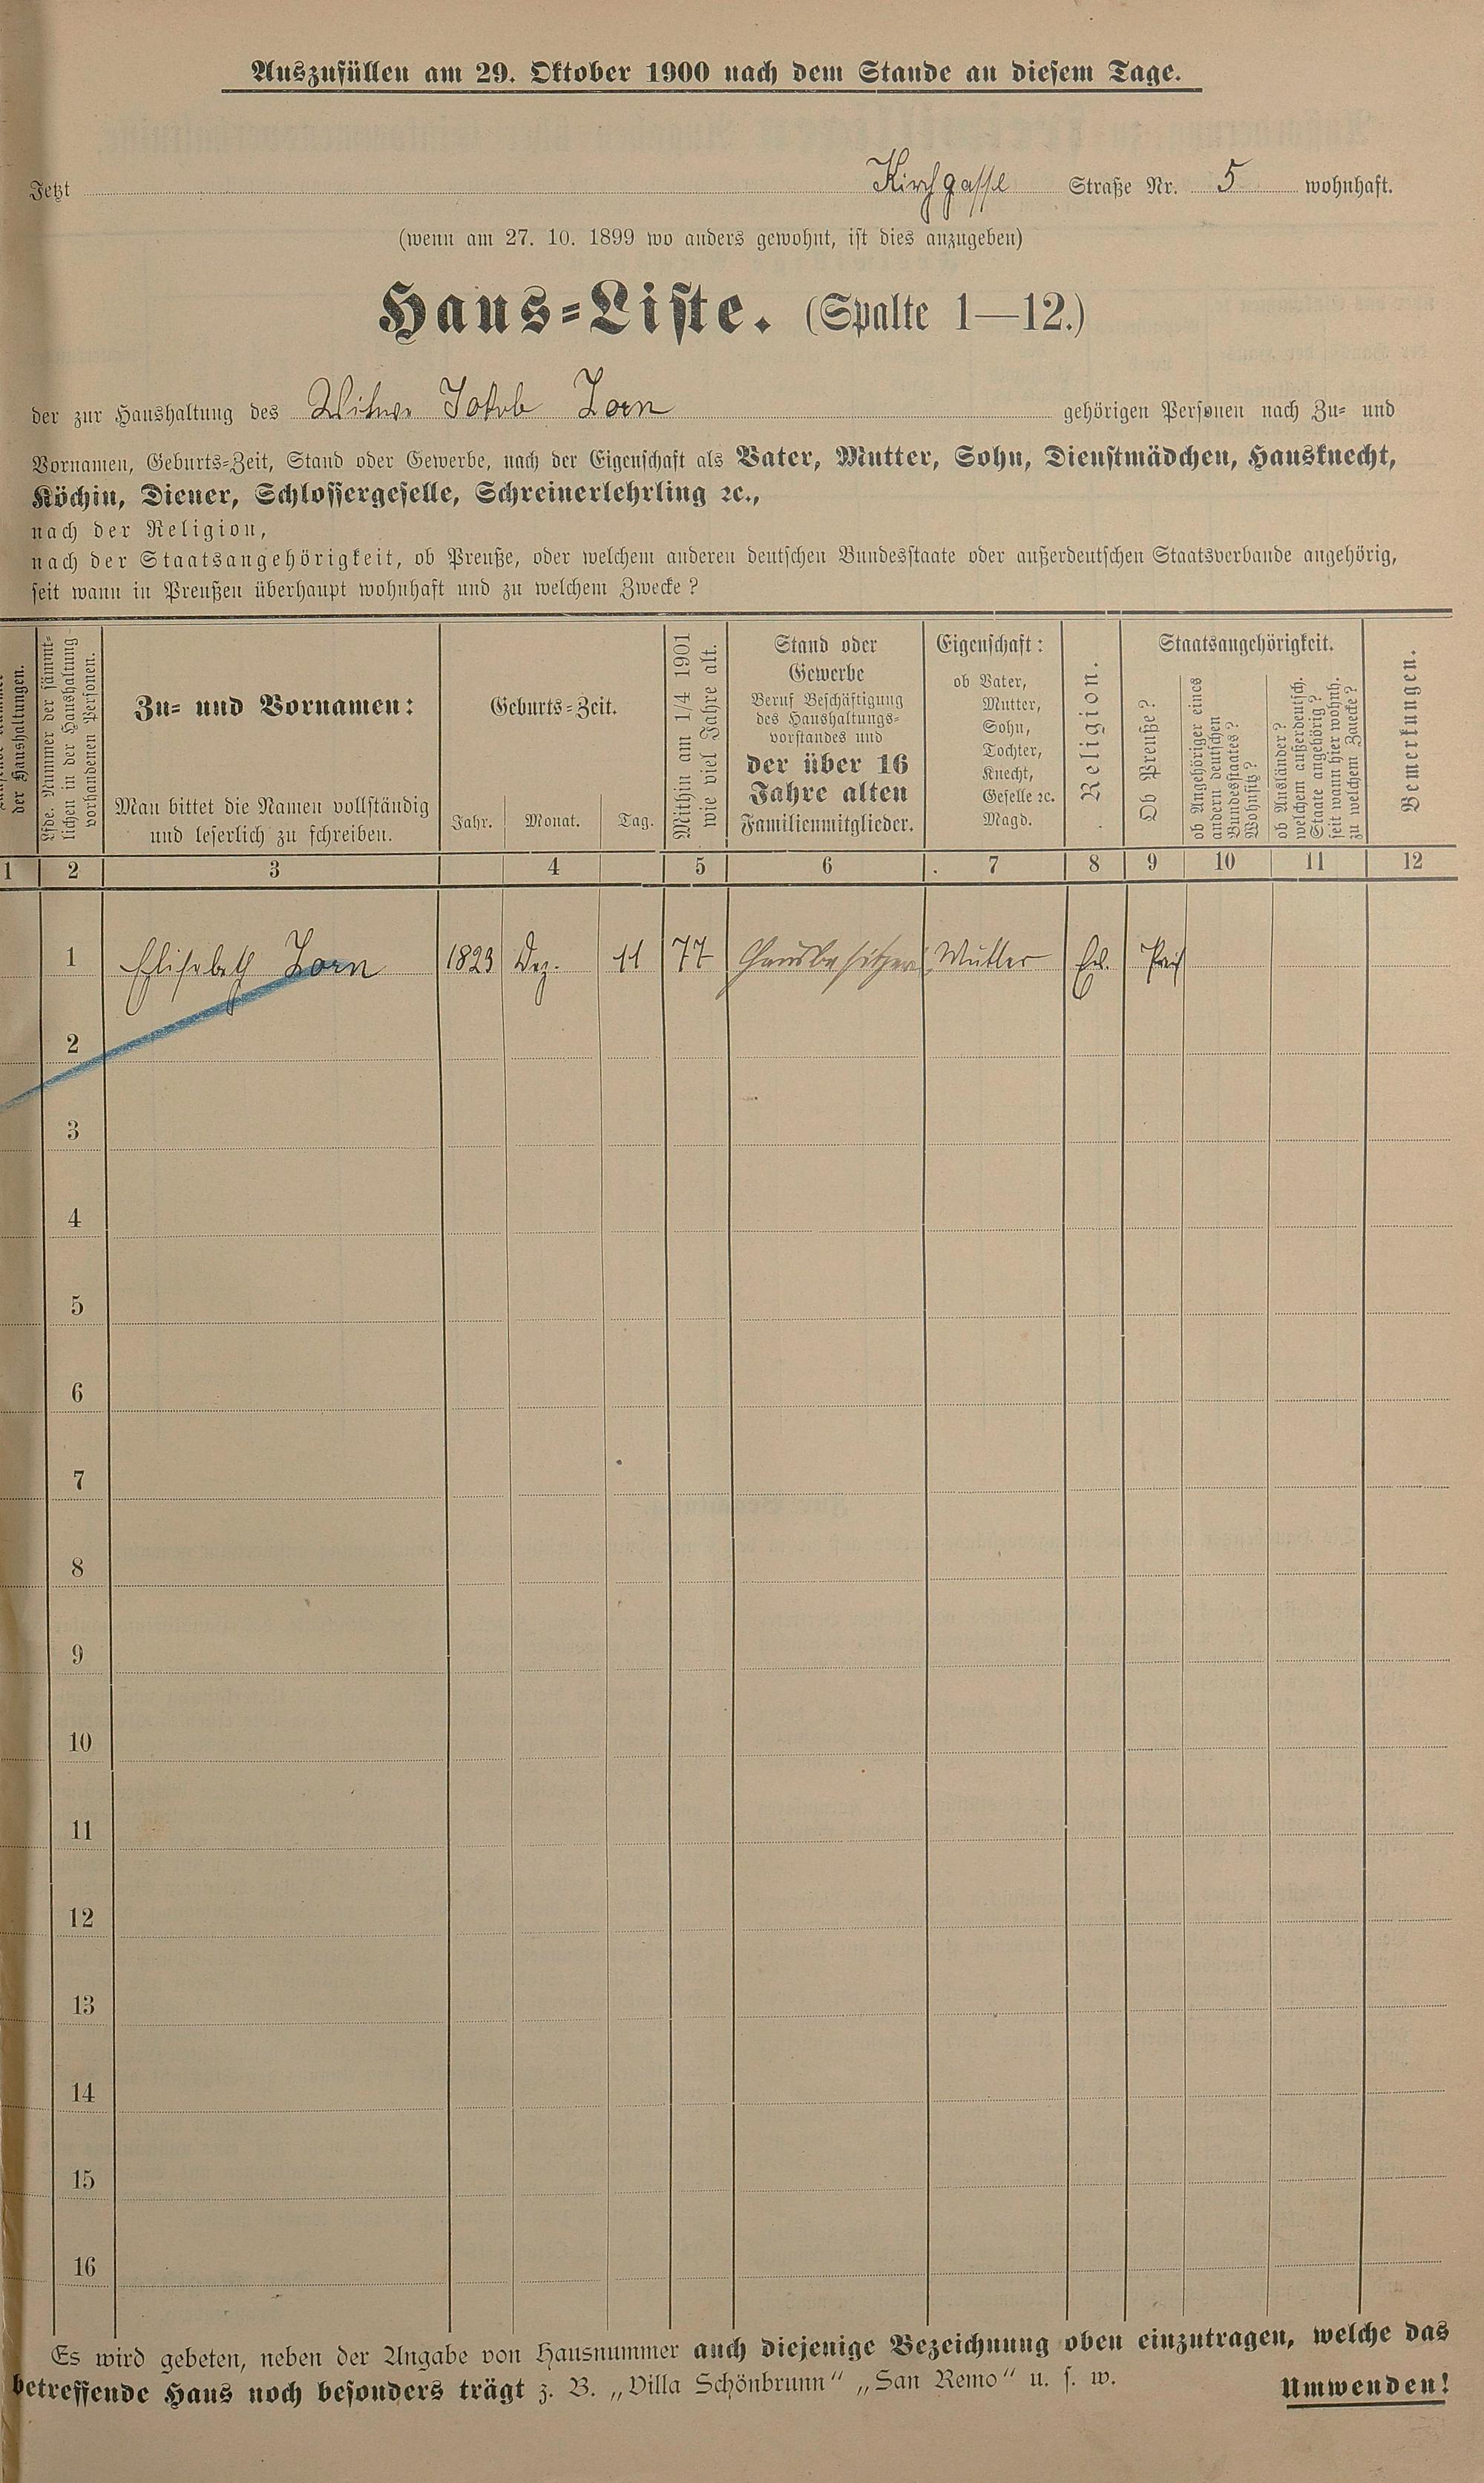 Auszufüllen am 29. Oktober 1900 nach dem Stande an diesem Tage.
Jetzt Kirchgasse Straße Nr. 5 wohnhaft.
(wenn am 27. 10. 1899 wo anders gewohnt, ist dies anzugeben)
Haus=Liste. (Spalte 1—12.)
der zur Haushaltung des Witwe Jakob Zorn gehörigen Personen nach Zu= und
Vornamen, Geburts=Zeit, Stand oder Gewerbe, nach der Eigenschaft als Vater, Mutter, Sohn, Dienstmädchen, Hausknecht,
Köchin, Diener, Schlossergeselle, Schreinerlehrling ꝛc.,
nach der Religion,
nach der Staatsangehörigkeit, ob Preuße, oder welchem anderen deutschen Bundesstaate oder außerdeutschen Staatsverbande angehörig,
seit wann in Preußen überhaupt wohnhaft und zu welchem Zwecke?
der Haushaltungen.
Lfde. Nummer der sämmt=
lichen in der Haushaltung
vorhandenen Personen.
Zu= und Vornamen:
Man bittet die Namen vollständig
und leserlich zu schreiben.
Geburts=Zeit.
Jahr. Monat. Tag.
Mithin am 1/4 1901
wie viel Jahre alt.
Stand oder
Gewerbe
Beruf Beschäftigung
des Haushaltungs=
vorstandes und
der über 16
Jahre alten
Familienmitglieder.
Eigenschaft:
ob Vater,
Mutter,
Sohn,
Tochter,
Knecht,
Geselle ꝛc.
Magd.
Religion.
Staatsangehörigkeit.
Ob Preuße?
ob Angehöriger eines
andern deutschen
Bundesstaates?
Wohnsitz?
ob Ausländer?
welchem außerdeutsch.
Staate angehörig?
seit wann hier wohnh.
zu welchem Zwecke?
Bemerkungen.
1 2 3 4 5 6 7 8 9 10 11 12
1 Elisabeth Zorn 1823 Dez. 11 77 Hausbesitzerin Mutter Ev.
2
3
4
5
6
7
8
9
10
11
12
13
14
15
16
Es wird gebeten, neben der Angabe von Hausnummer auch diejenige Bezeichnung oben einzutragen, welche das
betreffende Haus noch besonders trägt z. B. „Villa Schönbrunn“ „San Remo“ u. s. w.
Umwenden!